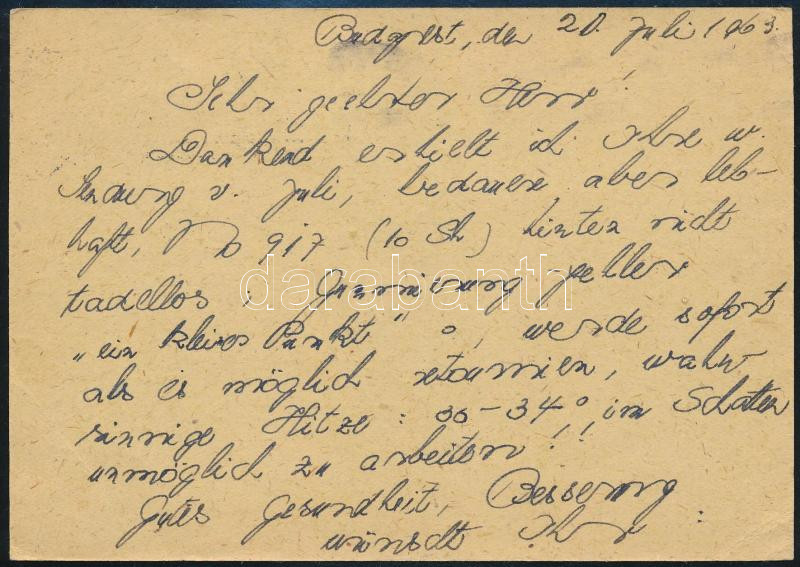 Budapest, den 20. Juli 1963.
Sehr geehrter Herr!
Dankend erhielt ich Ihre w.
Sendung v. Juli, bedauere aber leb-
haft, No 917 (10 Sh) hinten nicht
tadellos, Gummierung fehler
darabanth
"ein kleines Punkt" o, werde sofort
als es möglich retournieren, wahn-
sinnige Hitze: 33-34° im Schatten
unmöglich zu arbeiten!!
Gutes Gesundheit, Besserung
wünscht Ihr :